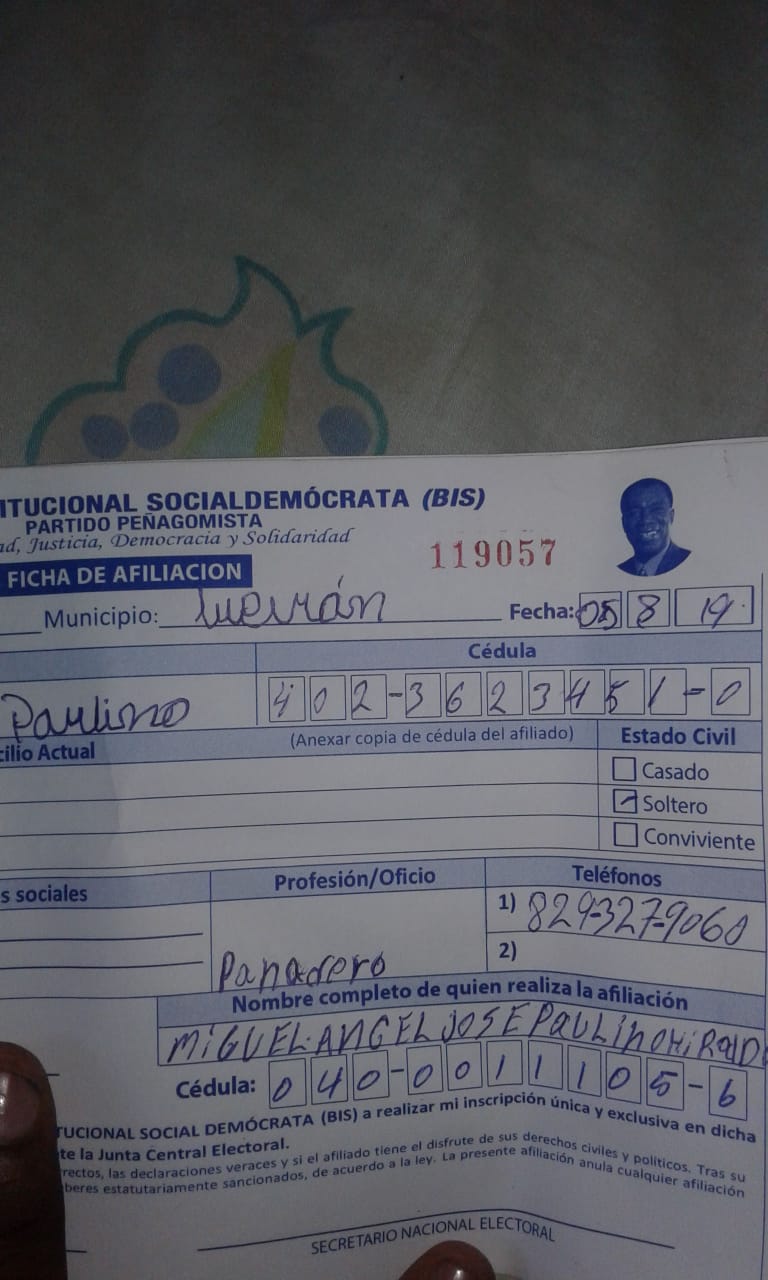 ITUCIONAL SOCIALDEMÓCRATA (BIS)
PARTIDO PEÑAGOMISTA
ad, Justicia, Democracia y Solidaridad
119057
FICHA DE AFILIACION
Municipio: Fecha: 05 8 19
Cédula
Paulino 402-3623451-0
cilio Actual (Anexar copia de cédula del afiliado) Estado Civil
Casado
Soltero
Conviviente
s sociales Profesión/Oficio Teléfonos
1) 829-327-9060
Panadero 2)
Nombre completo de quien realiza la afiliación
MiGUEL ANGEL JOSE PAULINO HiRALD
Cédula: 040-0011105-6
TUCIONAL SOCIAL DEMÓCRATA (BIS) a realizar mi inscripción única y exclusiva en dicha
te la Junta Central Electoral.
rrectos, las declaraciones veraces y si el afiliado tiene el disfrute de sus derechos civiles y políticos. Tras su
beres estatutariamente sancionados, de acuerdo a la ley. La presente afiliación anula cualquier afiliación
SECRETARIO NACIONAL ELECTORAL